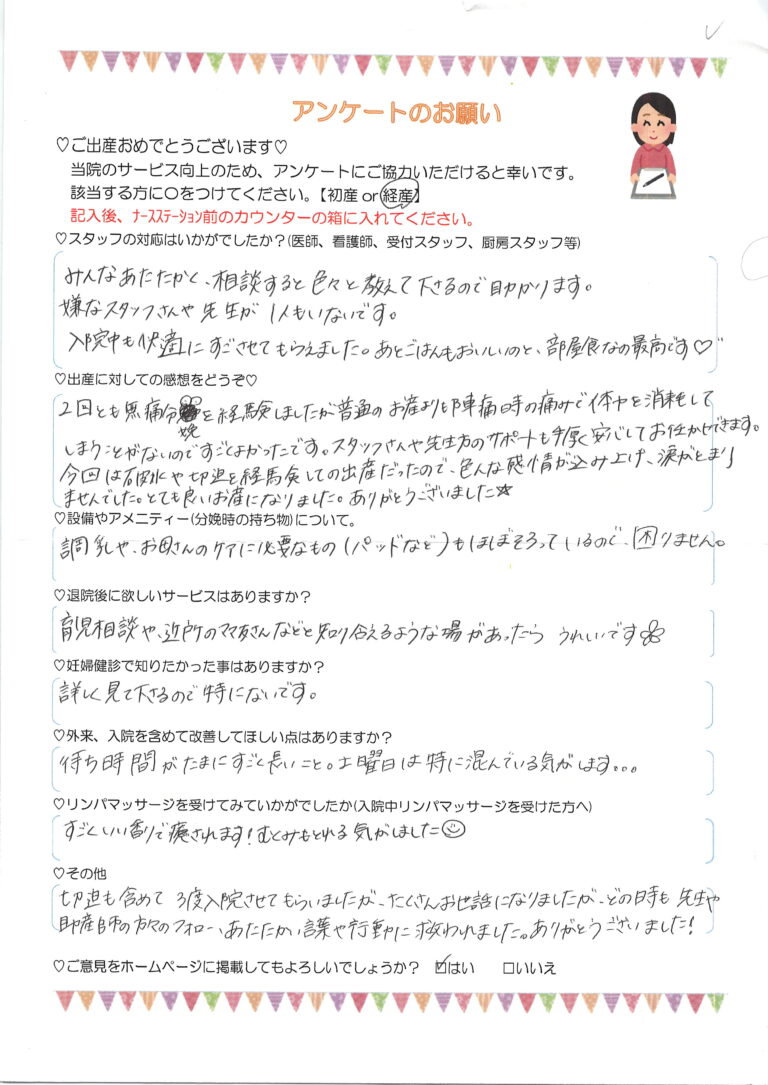 アンケートのお願い
♡ご出産おめでとうございます♡
当院のサービス向上のため、アンケートにご協力いただけると幸いです。
該当する方に〇をつけてください。【初産 or 経産】
記入後、ﾅｰｽｽﾃｰｼｮﾝ前のカウンターの箱に入れてください。
♡スタッフの対応はいかがでしたか？(医師、看護師、受付スタッフ、厨房スタッフ等)
みんなあたたかく、相談すると色々と教えて下さるので助かります。
嫌なスタッフさんや先生が1人もいないです。
入院中も快適にすごさせてもらえました。あとごはんもおいしいのと、部屋食なの最高です♡
♡出産に対しての感想をどうぞ♡
2回とも無痛分娩を経験しましたが普通のお産よりも陣痛時の痛みで体力を消耗して
しまうことがないのですごくよかったです。スタッフさんや先生方のサポートも手厚く安心してお任せできます。
今回は破水や切迫を経験しての出産だったので、色んな感情が込み上げ、涙がとまり
ませんでした。とても良いお産になりました。ありがとうございました☆
♡設備やアメニティー(分娩時の持ち物)について。
調乳や、お母さんのケアに必要なもの(パッドなど)もほぼそろっているので、困りません。
♡退院後に欲しいサービスはありますか？
育児相談や、近所のママ友さんなどと知り合えるような場があったらうれしいです
♡妊婦健診で知りたかった事はありますか？
詳しく見て下さるので特にないです。
♡外来、入院を含めて改善してほしい点はありますか？
待ち時間がたまにすごく長いこと。土曜日は特に混んでいる気がします。。。
♡リンパマッサージを受けてみていかがでしたか(入院中リンパマッサージを受けた方へ)
すごくいい香りで癒されます！むくみもとれる気がしました☺
♡その他
切迫も含めて3度入院させてもらいましたが、たくさんお世話になりましたが、どの時も先生や
助産師の方々のフォロー、あたたかい言葉や行動に救われました。ありがとうございました！
♡ご意見をホームページに掲載してもよろしいでしょうか？ ☑はい □いいえ